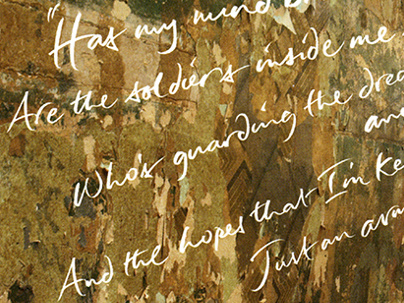 "Has my mind b
Are the soldiers inside me
Who's guarding the drea
and
And the hopes that I'm ke
Just an arm